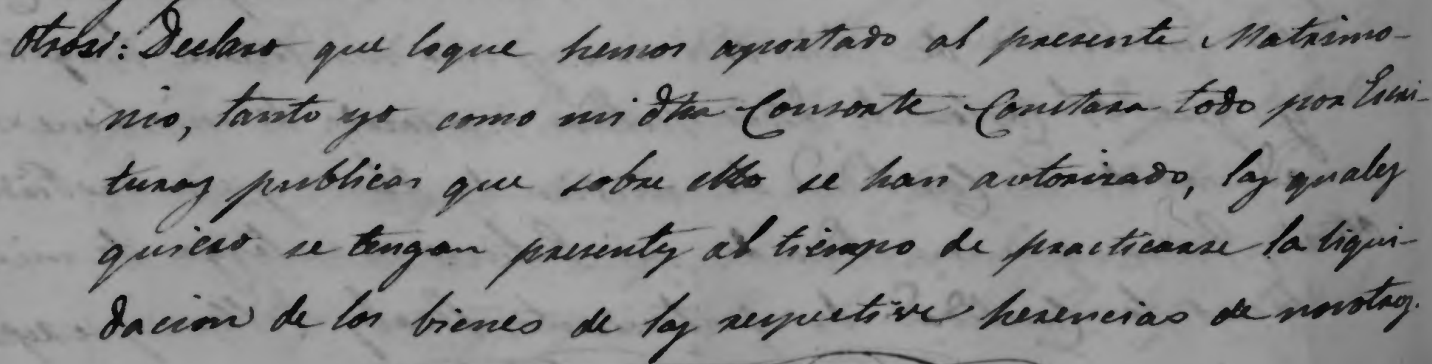 Otrosi: Declaro que loque hemos aportado al presente Matrimo-
nio, tanto yo como mi dha Consorte Constara todo por Escri-
turas publicas que sobre ello se han autorizado, las quales
quiero se tengan presentes al tiempo de practicarse la liqui-
dacion de los bienes de las respective herencias de nosotros.